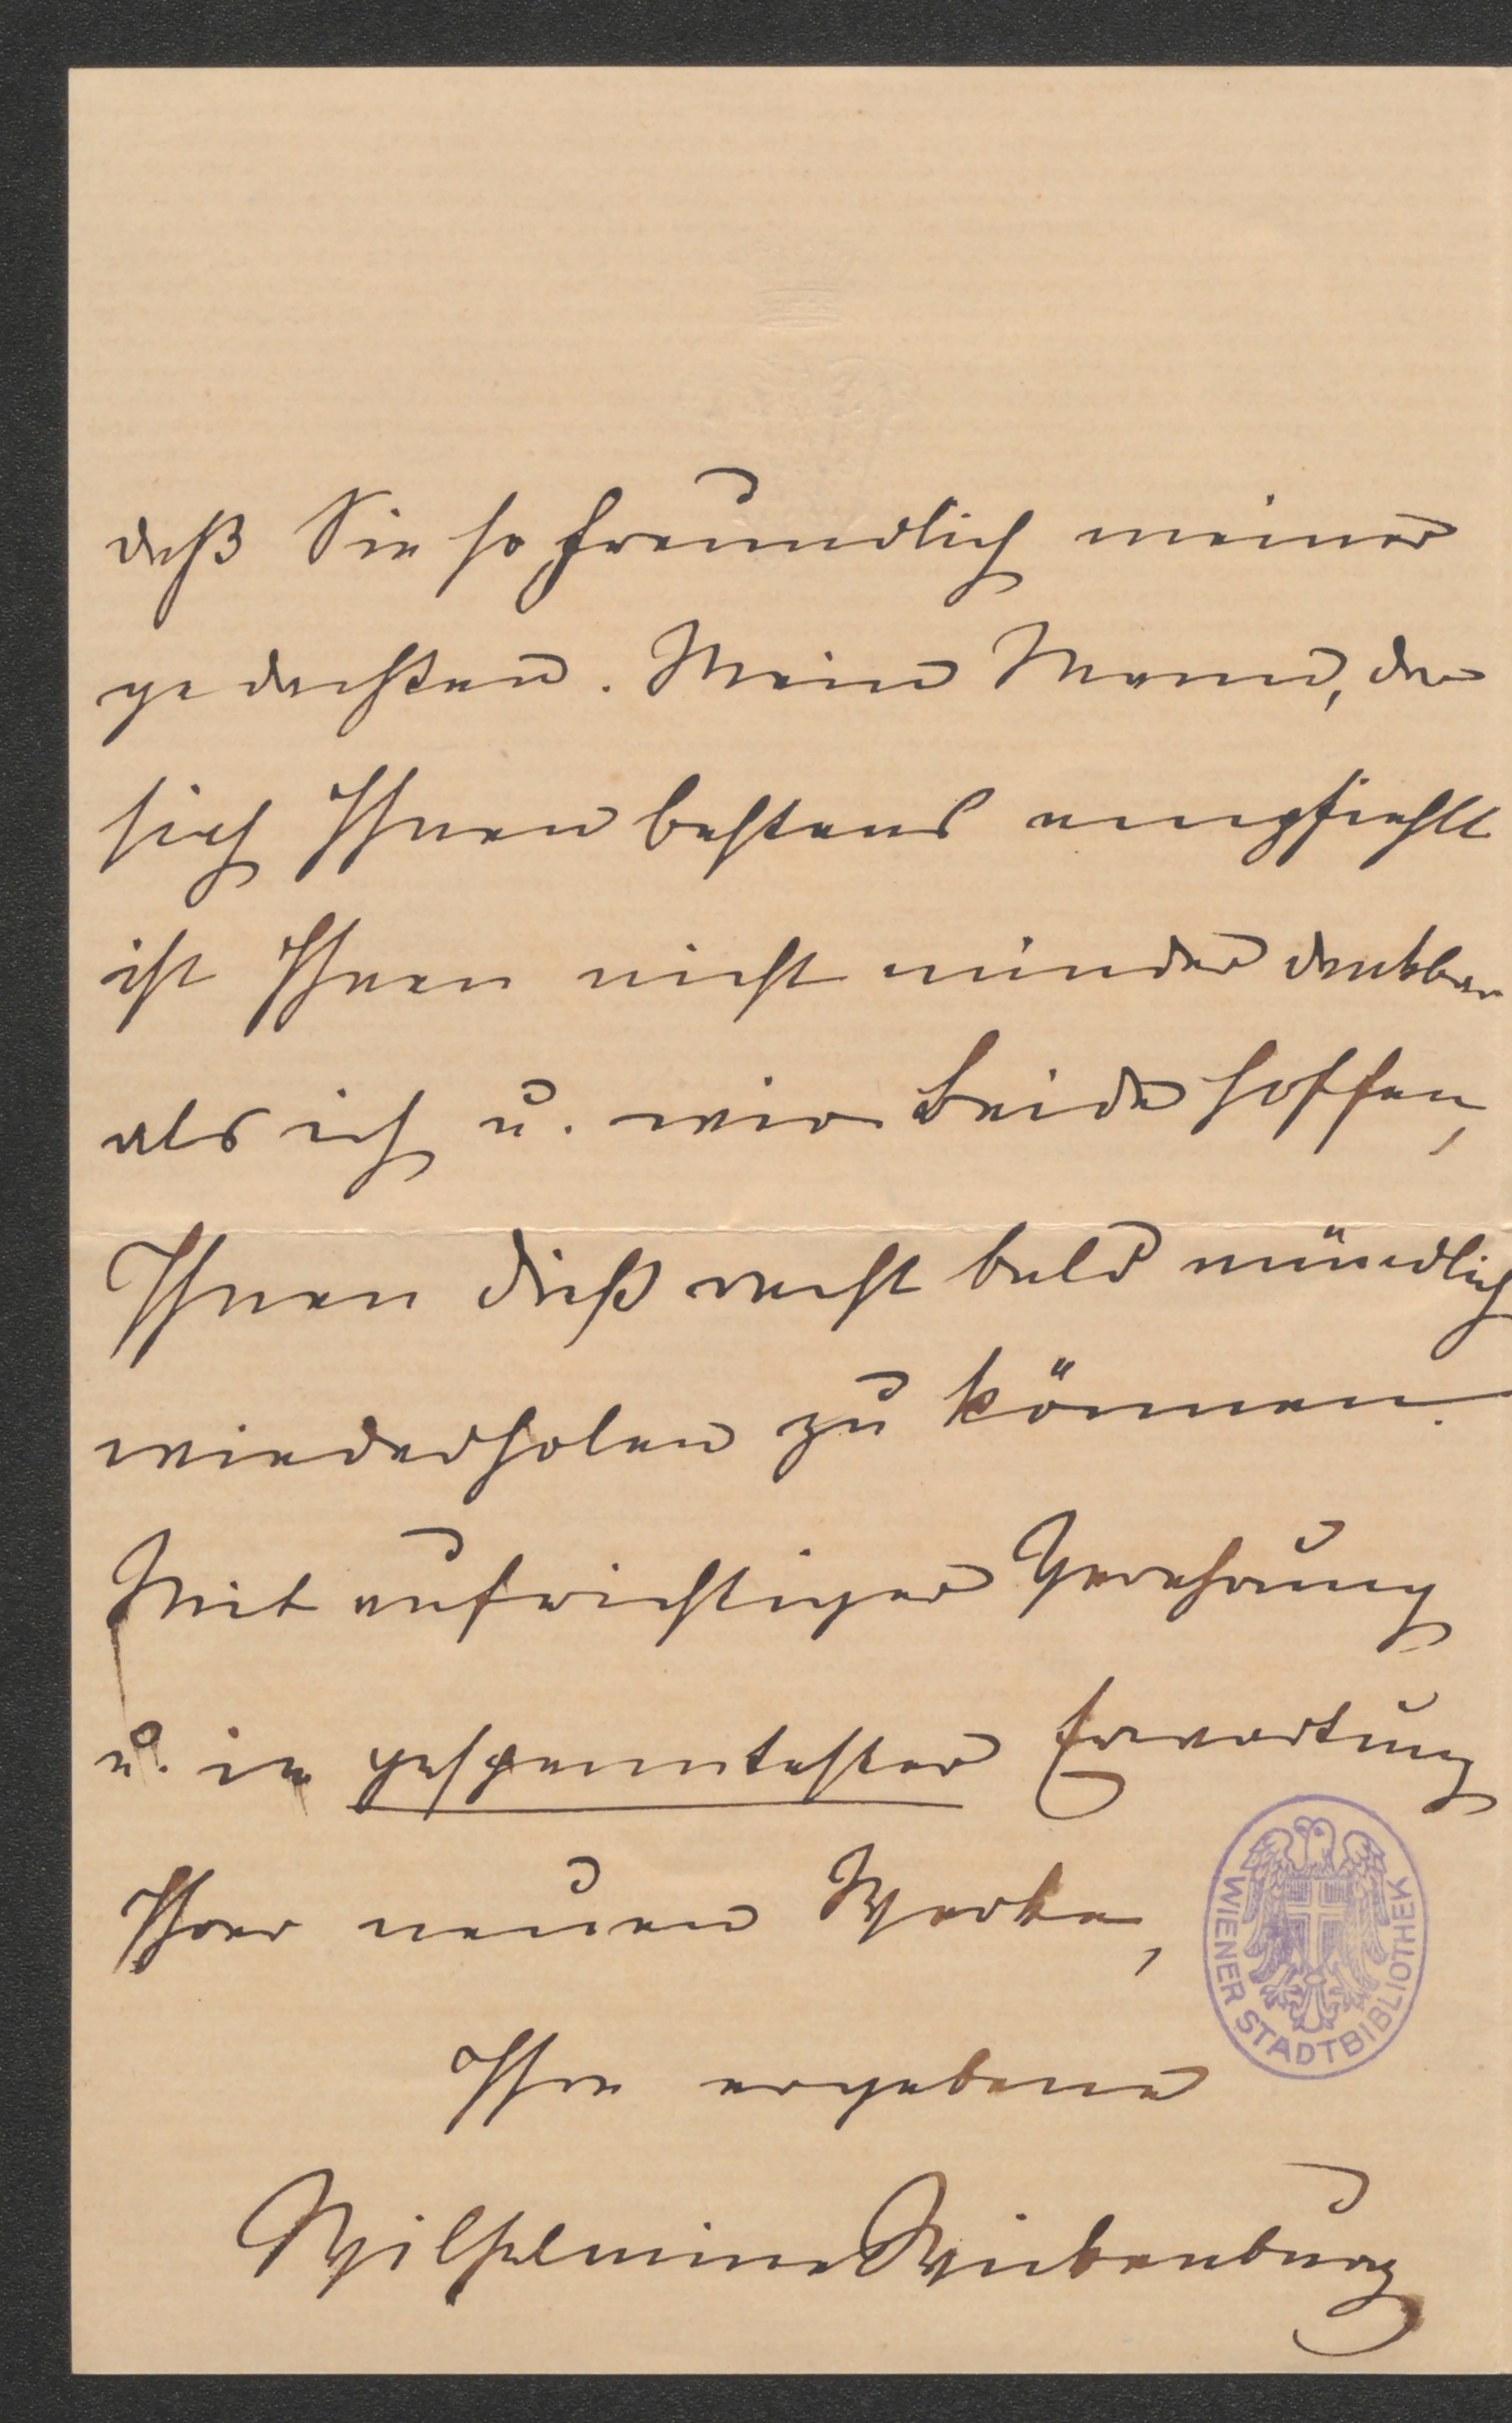 daß Sie so freundlich meiner
gedachten. Mein Mann, der
sich Ihnen bestens empfiehlt
ist Ihnen nicht minder dankbar
als ich u. wir beide hoffen,
Ihnen dieß recht bald mündlich
wiederholen zu können.
Mit aufrichtiger Verehrung
u. in gespanntester Erwartung
Ihrer neuen Werke,
Ihre ergebene
Wilhelmine Wickenburg
WIENER STADTBIBLIOTHEK